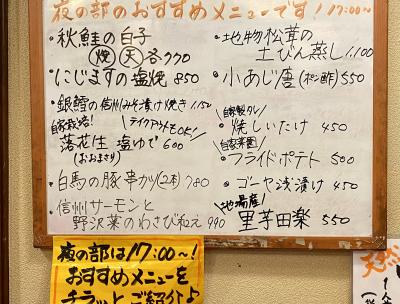 夜の部のおすすめメニューです！17:00〜！
・秋鮭の白子
焼 天 各770
・にじますの塩焼 850
・銀鱈の信州みそ漬け焼き 1,150
自家栽培！
テイクアウトもOK！
落花生 塩ゆで 600
(おおまさり)
・白馬の豚串カツ(2本) 780
・信州サーモンと
野沢菜のわさび和え 990
・地物松茸の
土びん蒸し 1,100
・小あじ唐(ポン酢) 550
自家製タレ
・焼しいたけ 450
自家菜園
・フライドポテト 500
・ゴーヤ浅漬け 450
地場産！
・里芋田楽 550
夜の部は17:00〜！
おすすめメニューを
チラッとご紹介♪
天然